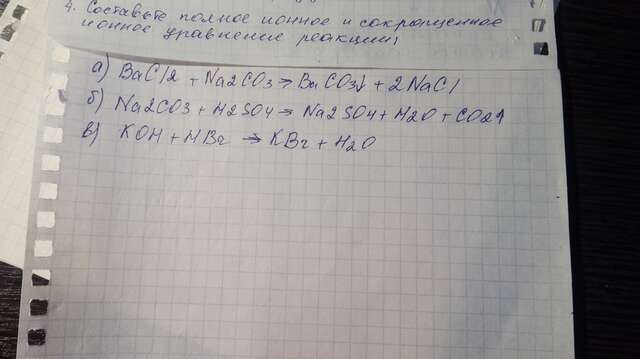 4. Составьте полное ионное и сокращенное
ионное уравнение реакции:
а) BaCl2 + Na2CO3 → BaCO3↓ + 2NaCl
б) Na2CO3 + H2SO4 → Na2SO4 + H2O + CO2↑
в) KOH + HBr → KBr + H2O